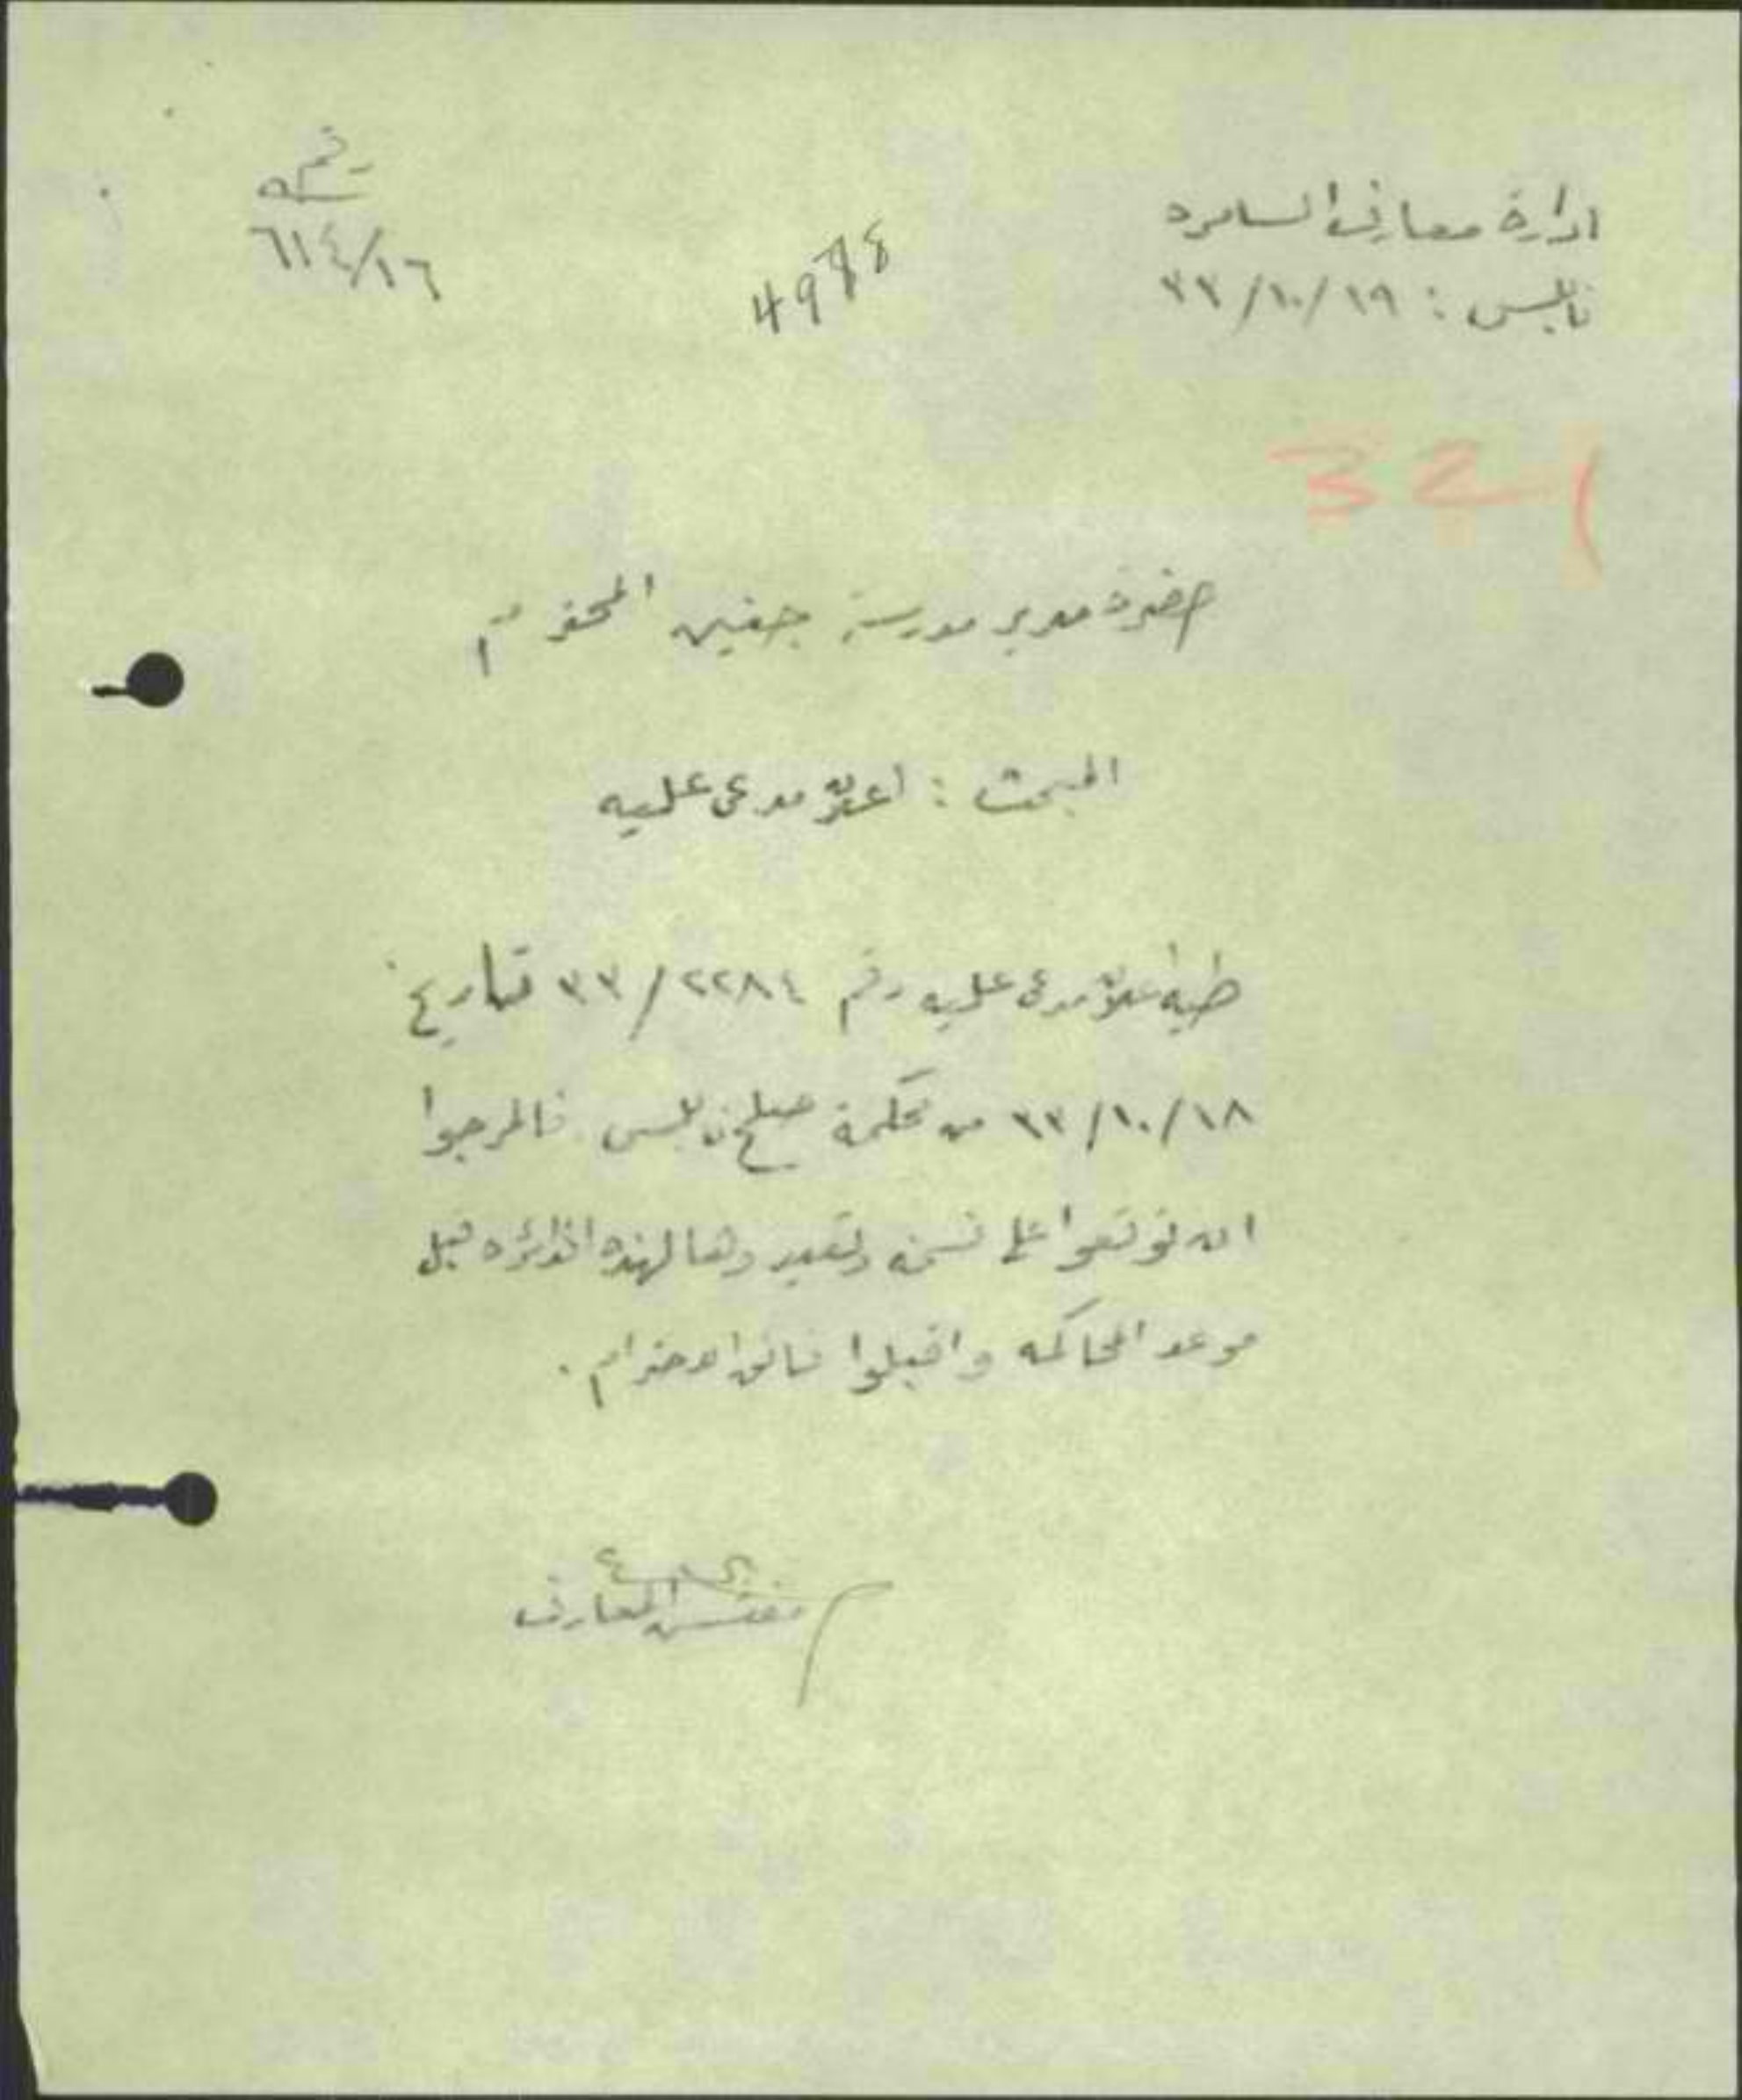 ادارة معارف السامره
نابلس : ١٩/١٠/٣٣
رقم
٦١٤/١٦
321
حضرة مدير مدرسة جنين المحترم
المبحث : اعلام مدعى عليه
طيه اعلام مدعى عليه رقم ٢٢٨٤/٣٣ تاريخ
١٨/١٠/٣٣ من محكمة صلح نابلس فالمرجوا
ان توقعوا على نسخه وتعيدوها لهذه الدائره قبل
موعد المحاكمه واقبلوا فائق الاحترام .
مفتش المعارف